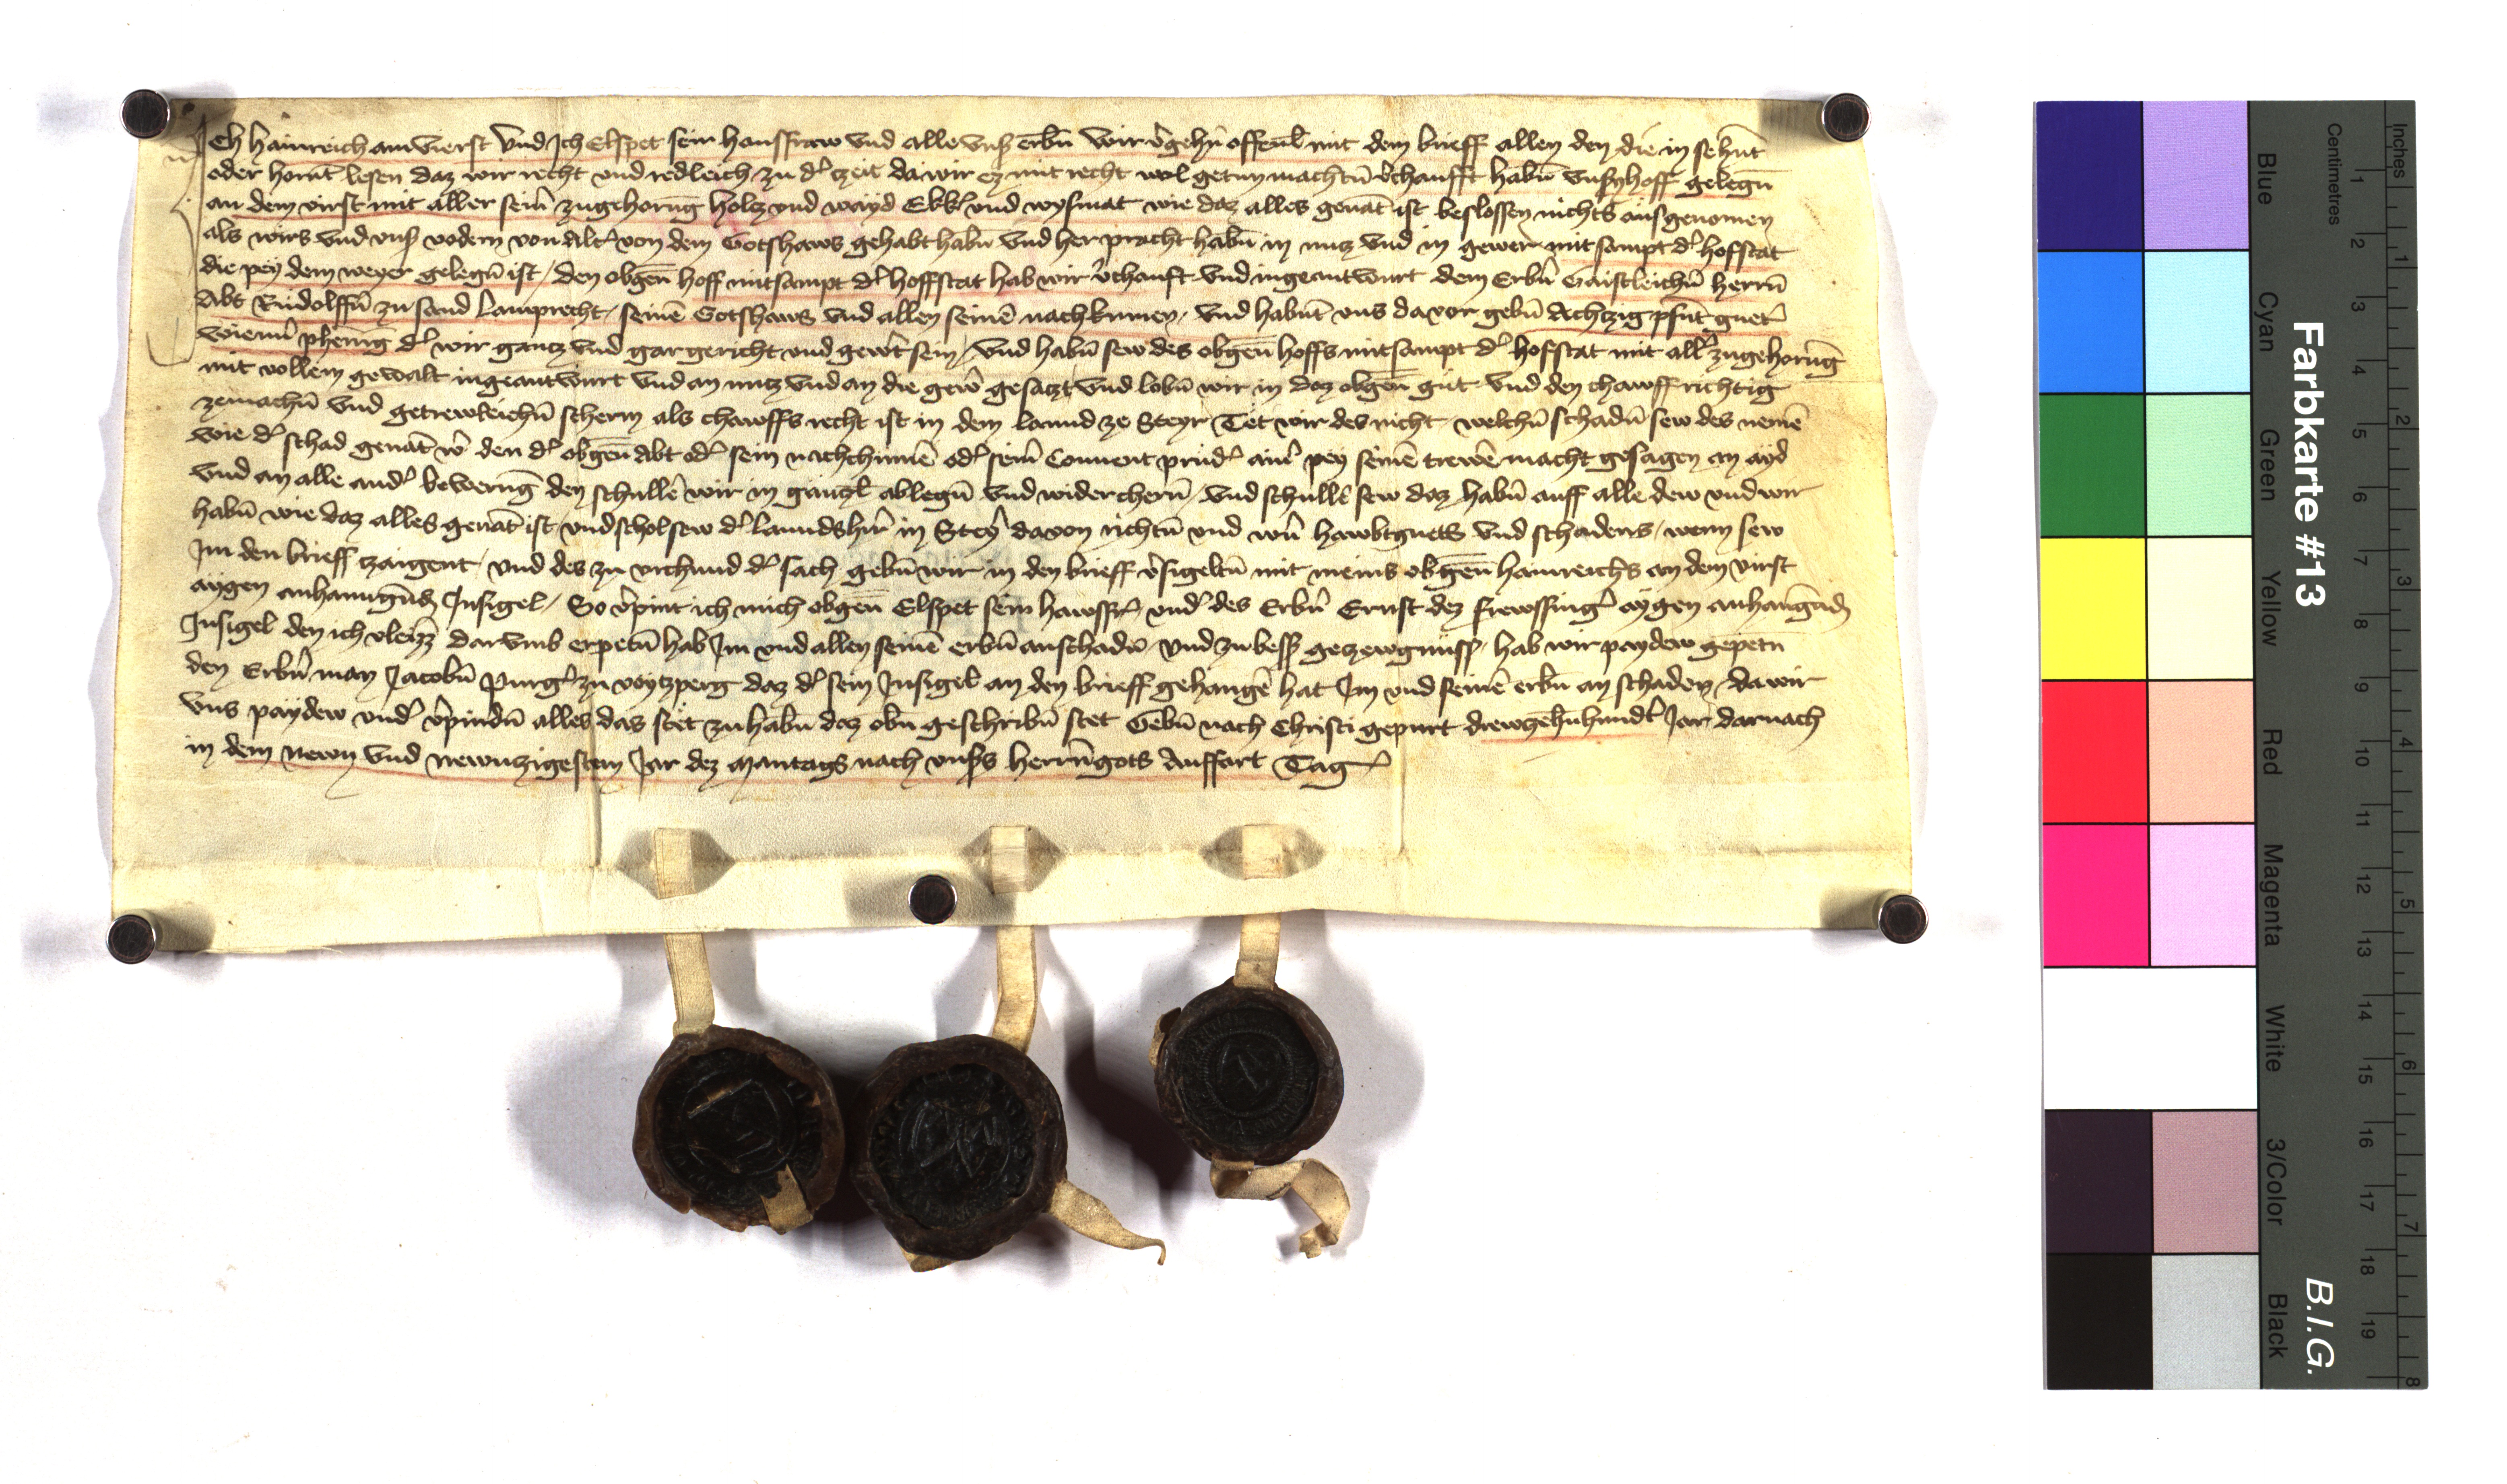 Ich Hainreich am Vierst vnd Ich Elspet sein hausfraw vnd alle vnß erbn̄ wir v̓gehn̄ offenl̄ mit dem brieff allen den die in sehn̄t
oder horn̄t lesen daz wir recht vnd redleich zu d̓ czeit da wir ez mit recht wol getun machtn̄ v̓chaufft habn̄ vnsn̄ hoff gelegn̄
an dem virst mit aller sein̓ zugehorūg holcz vnd wayd Ekk̓ vnd wysmat wie daz alles genāt ist beslossen nichts ausgenomen
als wirs vnd vnß vodern von Alt̓ von dem Gotshaws gehabt habn̄ vnd her pracht habn̄ in nucz vnd in gewer mitsampt d̓ hofstat
die pey dem weyer gelegn̄ ist / den obgen̄ hoff mitsampt d̓ hoffstat hab wir v̓chauft vnd ingeantwurt dem Erbn̓ Gaistleichn̄ herrn̄
Abt Rudolffn̄ zu sand Lamprecht / seinē Gotshaws vnd allen seinē nachkumen / vnd habn̄t vns da vor gebn̄ Achtzig pfūt guet̓
wienn̓ phenīg d̓ wir gancz vnd gar gericht vnd gew̓t sein / vnd habn̄ sew des obgen̄ hoffs mitsampt d̓ hofstat mit all̓ zugehorūg
mit vollem gewalt ingeantwurt vnd an nucz vnd an die gew̓ gesaczt vnd lobn̄ wir in daz obgen̄ gut vnd den chawff richtig
zemachn̄ vnd getrewleichn̄ scherm als chawffs recht ist in dem lannd ze Steyr Tet wir des nicht welchn̄ schadn̄ sew des nemē
wie d̓ schad genāt w̓ den d̓ obgen̄ Abt od̓ sein nachchumē od̓ seim Conuent prud̓ ain̓ pey seinē trewē macht gesagen an ayd
vnd an alle and̓ bewerūg den schullē wir in gänczl̄ ablegn̄ vnd widerchern̄ / vnd schullē sew daz habn̄ auff alle dew vnd wir
habn̄ wie daz alles genāt ist / vnd schol sew d̓ lanndsh̓r in Stey̓ davon richtn̄ vnd wn̓ hawbtguets vnd schadens / wenn sew
Im den brieff czaigent / vnd des zu vrchund d̓ sach gebn̄ wir in den brieff v̓sigeltn̄ mit meins obgen̄ hainreichs an dem virst
aygen anhanngūdm Insigel / So v̓pint ich mich obgen̄ Elspet sein hawsfr̓ / vnd̓ des Erbn̓ Ernst dez frewssing̓ aygen anhangūdm
Insigel den ich vleizz darvmb erpetn̄ hab Im vnd allen seinē erbn̄ an schadn̄ / vnd zu bess̓ gezewgnüss / hab wir paydew gepetn̄
den Erbn̓ man Jacobn̄ purg̓ zu voytzperg daz d̓ sein Insigel an den brieff gehangē hat Im vnd seinē erbn̄ an schaden / da wir
vns paydew vnd̓ v̓pindn̄ alles das stet zu habn̄ daz obn̄ geschribn̄ stet Gebn̄ nach Christi gepurt drewzehūhundt̓ Jar darnach
in dem newn vnd newnzigestem Jar dez Mantags nach vnßs herrn̄gots Auffart Tag
Farbkarte #13
B.I.G.
Centimetres
Inches
Blue
Cyan
Green
Yellow
Red
Magenta
White
3/Color
Black
1 2 3 4 5 6 7 8 9 10 11 12 13 14 15 16 17 18 19
1 2 3 4 5 6 7 8